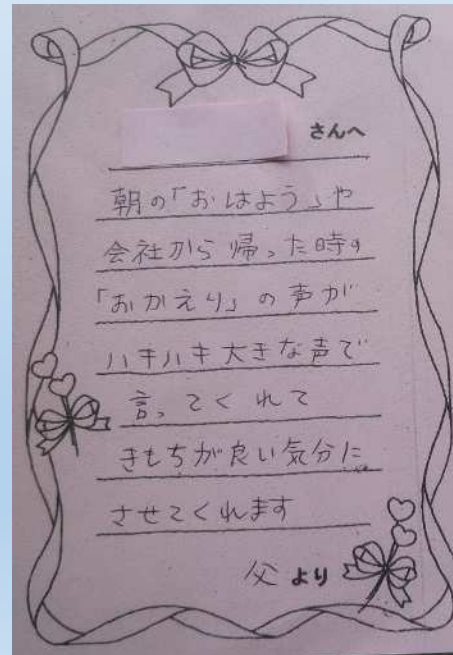 さんへ
朝の「おはよう」や
会社から帰った時の
「おかえり」の声が
ハキハキ大きな声で
言ってくれて
きもちが良い気分に
させてくれます
父より